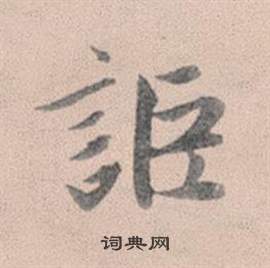 詎
词典网